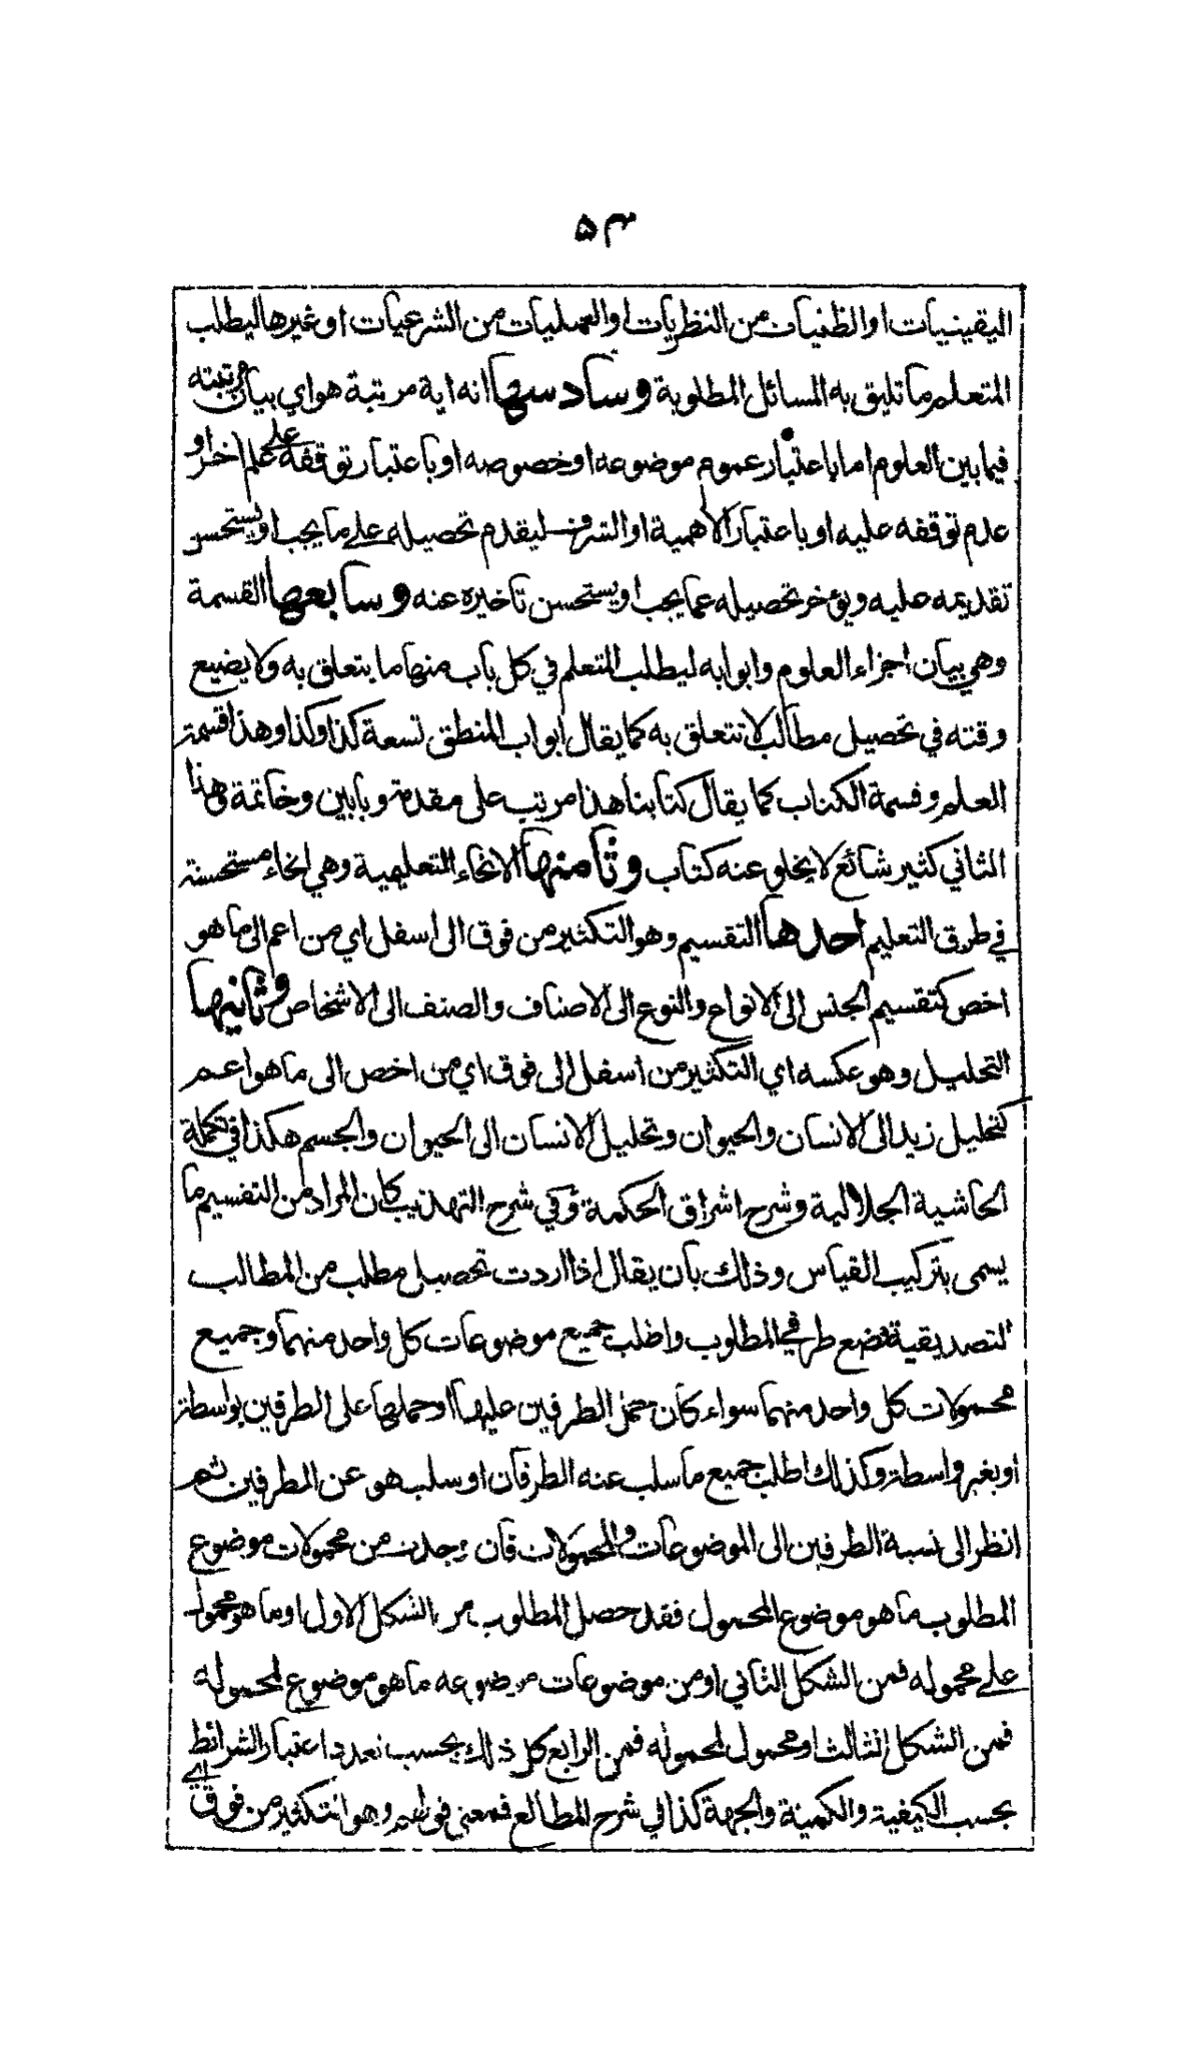 ۵۳
اليقينيات او الظنيات من النظريات او العمليات من الشرعيات او غيرها ليطلب
المتعلم ما تليق به المسائل المطلوبة وسادسها انه اية مرتبة هو اي بيان مرتبته
فيما بين العلوم اما باعتبار عموم موضوعه او خصوصه او باعتبار توقفه على علم اخر او
عدم توقفه عليه او باعتبار الاهمية او الشرف ليقدم تحصيله على ما يجب او يستحسن
تقديمه عليه ويؤخر تحصيله عما يجب او يستحسن تاخيره عنه وسابعها القسمة
وهي بيان اجزاء العلوم وابوابه ليطلب المتعلم في كل باب منها ما يتعلق به ولا يضيع
وقته في تحصيل مطالب لا تتعلق به كما يقال ابواب المنطق تسعة كذا وكذا وهذا قسمة
العلم وقسمة الكتاب كما يقال كتابنا هذا مرتب على مقدمة وبابين وخاتمة وهذا
الثاني كثير شائع لا يخلو عنه كتاب وثامنها الانحاء التعليمية وهي انحاء مستحسنة
في طرق التعليم احدها التقسيم وهو التكثير من فوق الى اسفل اي من اعم الى ما هو
اخص كتقسيم الجنس الى الانواع والنوع الى الاصناف والصنف الى الاشخاص وثانيها
التحليل وهو عكسه اي التكثير من اسفل الى فوق اي من اخص الى ما هو اعم
كتحليل زيد الى الانسان والحيوان وتحليل الانسان الى الحيوان والجسم هكذا في تكملة
الحاشية الجلالية وشرح اشراق الحكمة وفي شرح التهذيب كان المراد من التقسيم ما
يسمى بتركيب القياس وذلك بان يقال اذا اردت تحصيل مطلب من المطالب
التصديقية فضع طرفي المطلوب واطلب جميع موضوعات كل واحد منهما وجميع
محمولات كل واحد منهما سواء كان حمل الطرفين عليها او حملها على الطرفين بواسطة
او بغير واسطة وكذلك اطلب جميع ما سلب عنه الطرفان او سلب هو عن الطرفين ثم
انظر الى نسبة الطرفين الى الموضوعات والمحمولات فان وجدت من محمولات موضوع
المطلوب ما هو موضوع المحمول فقد حصل المطلوب من الشكل الاول او ما هو محمول
على محموله فمن الشكل الثاني او من موضوعات موضوعه ما هو موضوع لمحموله
فمن الشكل الثالث او محمول لمحموله فمن الرابع كل ذلك بحسب تعدد اعتبار الشرائط
بحسب الكيفية والكمية والجهة كذا في شرح المطالع فمعنى قولهم وهو التكثير من فوق اي